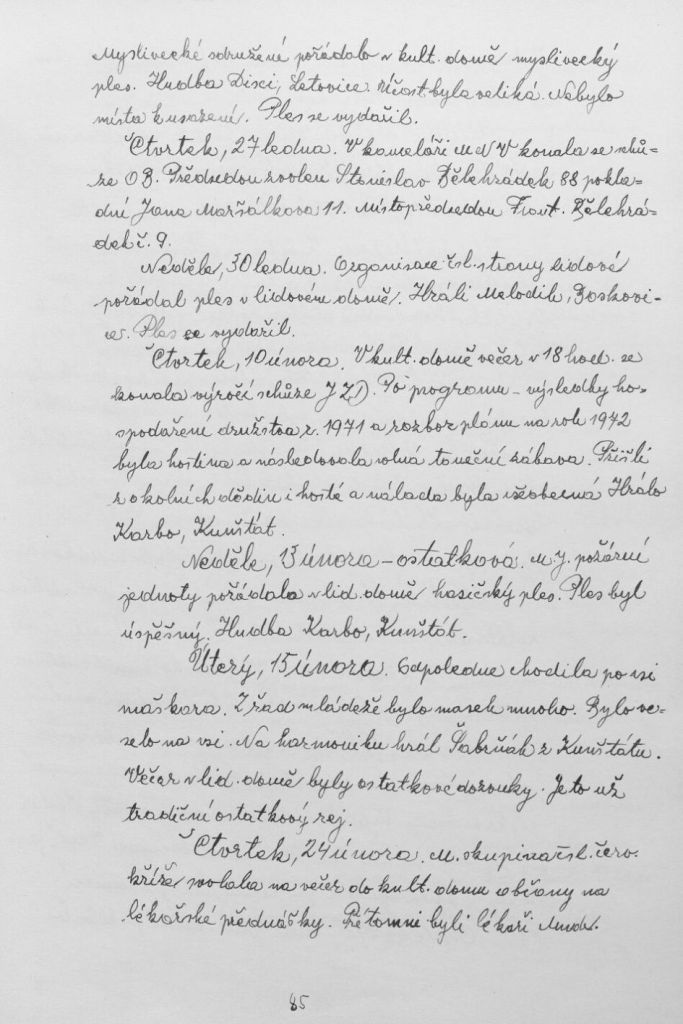 Myslivecké sdružené pořádalo v kult. domě myslivecký
ples. Hudba Disci, Letovice. Účast byla veliká. Nebylo
místa k usazení. Ples se vydařil.
Čtvrtek, 27 ledna. V kanceláři MNV konala se schů-
ze OB. Předsedou zvolen Stanislav Bělehrádek 88 pokla-
dní Jana Maršálkova 11. Místopředsedou Frant. Bělehrá-
dek č. 9.
Neděle, 30 ledna. Organisace čsl. strany lidové
pořádal ples v lidovém domě. Hráli Melodik, Boskovi-
ce. Ples se vydařil.
Čtvrtek, 10 února. V kult. domě večer v 18 hod. se
konala výročí schůze JZD. Po programu - výsledky ho-
spodaření družstva z r. 1971 a rozbor plánu na rok 1972
byla hostina a následovala volná taneční zábava. Přišli
z okolních dědin i hosté a nálada byla všobecná Hrálo
Karbo, Kunštát.
Neděle, 13 února - ostatková. M.J. požární
jednoty pořádala v lid. domě hasičský ples. Ples byl
úspěšný. Hudba Karbo, Kunštát.
Úterý, 15 února. Odpoledne chodila po vsi
maškara. Z řad mládeže bylo masek mnoho. Bylo ve-
selo na vsi. Na harmoniku hrál Šabrňák z Kunštátu.
Večer v lid. domě byly ostatkové dozvuky. Je to už
tradiční ostatkový rej.
Čtvrtek, 24 února. M. skupina čsl. červ.
kříže svolala na večer do kult. domu občany na
lékařské přednášky. Přítomni byli lékaři Mudr.
85